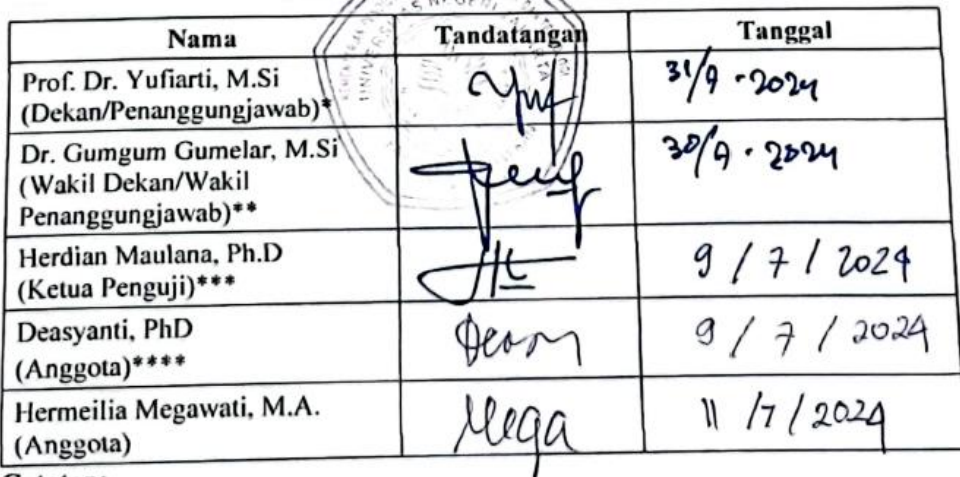 Nama Tandatangan Tanggal
Prof. Dr. Yufiarti, M.Si
(Dekan/Penanggungjawab)*
31/7 - 2024
Dr. Gumgum Gumelar, M.Si
(Wakil Dekan/Wakil
Penanggungjawab)**
30/7 - 2024
Herdian Maulana, Ph.D
(Ketua Penguji)***
9 / 7 / 2024
Deasyanti, PhD
(Anggota)****
9 / 7 / 2024
Hermeilia Megawati, M.A.
(Anggota)
Mega
11 / 7 / 2024